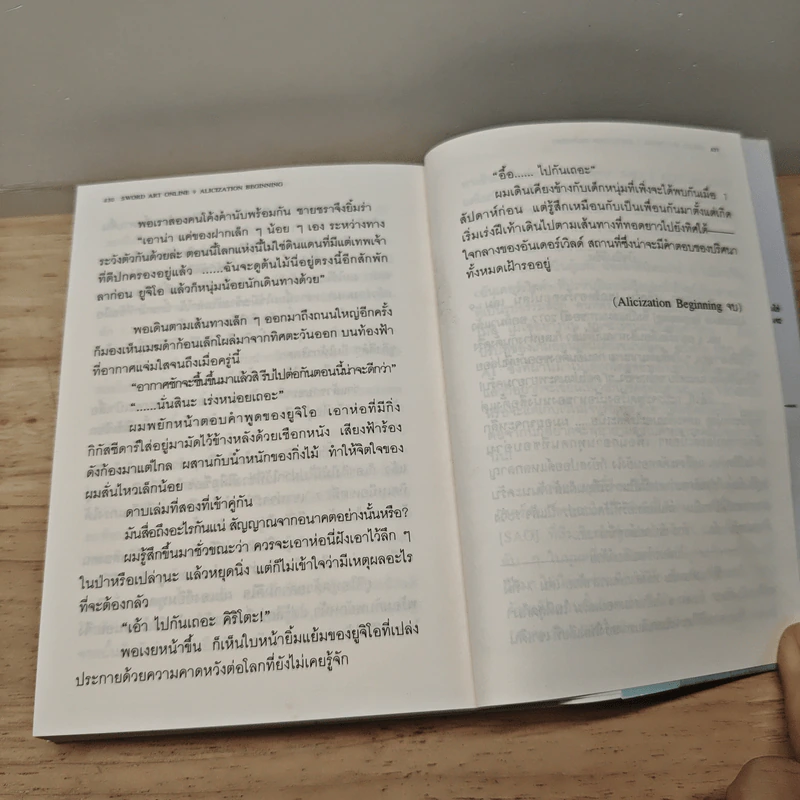 SWORD ART ONLINE 9 ALICIZATION BEGINNING
พอเราสองคนโค้งคำนับพร้อมกัน ชายชราจึงยิ้มร่า
"เอาน่า แค่ของฝากเล็ก ๆ น้อย ๆ เอง ระหว่างทาง
ระวังตัวกันด้วยล่ะ ตอนนี้โลกแห่งนี้ไม่ใช่ดินแดนที่มีแต่เทพเจ้า
ที่ดีปกครองอยู่แล้ว ......ฉันจะดูต้นไม้นี่อยู่ตรงนี้อีกสักพัก
ลาก่อน ยูจิโอ แล้วก็หนุ่มน้อยนักเดินทางด้วย"
พอเดินตามเส้นทางเล็ก ๆ ออกมาถึงถนนใหญ่อีกครั้ง
ก็มองเห็นเมฆดำก้อนเล็กโผล่มาจากทิศตะวันออก บนท้องฟ้า
ที่อากาศแจ่มใสจนถึงเมื่อครู่นี้
"อากาศชักจะขึ้นขึ้นมาแล้วสิ รีบไปต่อกันตอนนี้น่าจะดีกว่า"
"......นั่นสินะ เร่งหน่อยเถอะ"
ผมพยักหน้าตอบคำพูดของยูจิโอ เอาห่อที่มีกิ่ง
กิกัสซีดาร์ใส่อยู่มามัดไว้ข้างหลังด้วยเชือกหนัง เสียงฟ้าร้อง
ดังก้องมาแต่ไกล ผสานกับน้ำหนักของกิ่งไม้ ทำให้จิตใจของ
ผมสั่นไหวเล็กน้อย
ดาบเล่มที่สองที่เข้าคู่กัน
มันสื่อถึงอะไรกันแน่ สัญญาณจากอนาคตอย่างนั้นหรือ?
ผมรู้สึกขึ้นมาชั่วขณะว่า ควรจะเอาห่อนี่ฝังเอาไว้ลึก ๆ
ในป่าหรือเปล่านะ แล้วหยุดนิ่ง แต่ก็ไม่เข้าใจว่ามีเหตุผลอะไร
ที่จะต้องกลัว
"เอ้า ไปกันเถอะ คิริโตะ!"
พอเงยหน้าขึ้น ก็เห็นใบหน้ายิ้มแย้มของยูจิโอที่เปล่ง
ประกายด้วยความคาดหวังต่อโลกที่ยังไม่เคยรู้จัก
"อื้อ...... ไปกันเถอะ"
ผมเดินเคียงข้างกับเด็กหนุ่มที่เพิ่งจะได้พบกันเมื่อ 1
สัปดาห์ก่อน แต่รู้สึกเหมือนกับเป็นเพื่อนกันมาตั้งแต่เกิด
เริ่มเร่งฝีเท้าเดินไปตามเส้นทางที่ทอดยาวไปยังทิศใต้——
ใจกลางของอันเดอร์เวิลด์ สถานที่ซึ่งน่าจะมีคำตอบของปริศนา
ทั้งหมดเฝ้ารออยู่
(Alicization Beginning จบ)